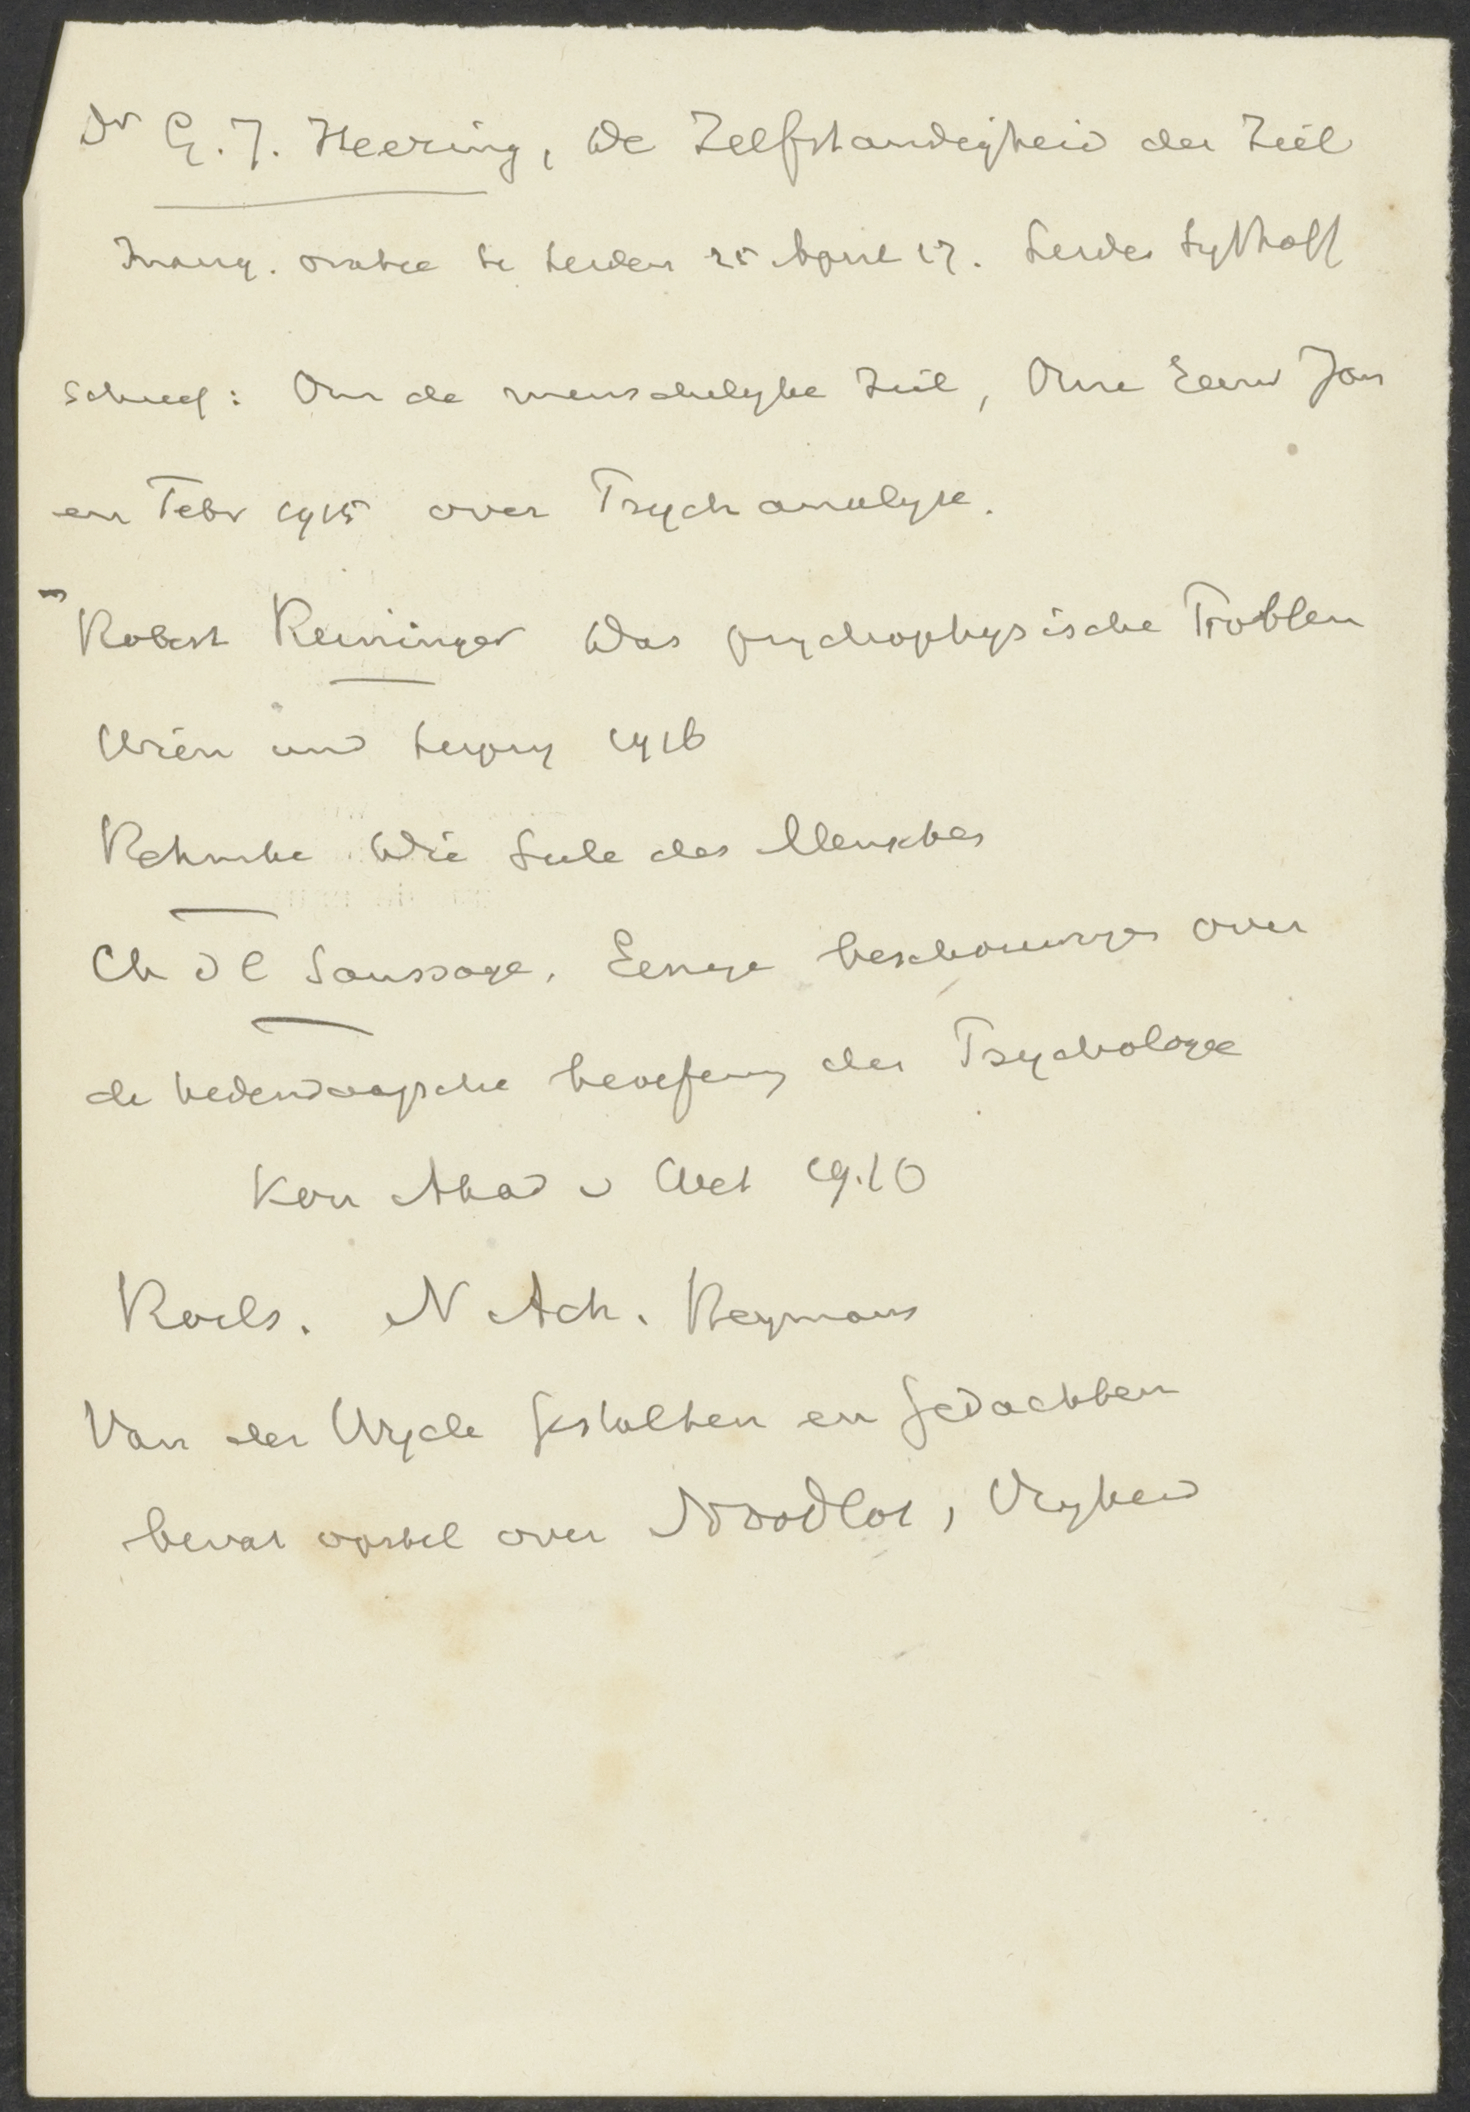 Dr G. J. Heering, De Zelfstandigheid der Ziel
Inaug. oratie te Leiden 25 April 17. Leiden Sythoff
schreef: Om de menschelyke Ziel, Onze Eeuw Jan
en Febr 1915 over Psychanalyse.
Robert Reininger Das psychophysische Problem
Wien und Leipzig 1916
Rehmke Die Seele des Menschen
Ch d l Saussaye. Eenige beschouwingen over
de hedendaagsche beoefening der Psychologie
Kon Akad v Wet 1910
Roels. N Ach. Heymans
Van der Wyck Gestalten en Gedachten
bevat opstel over Noodlot, Vryheid